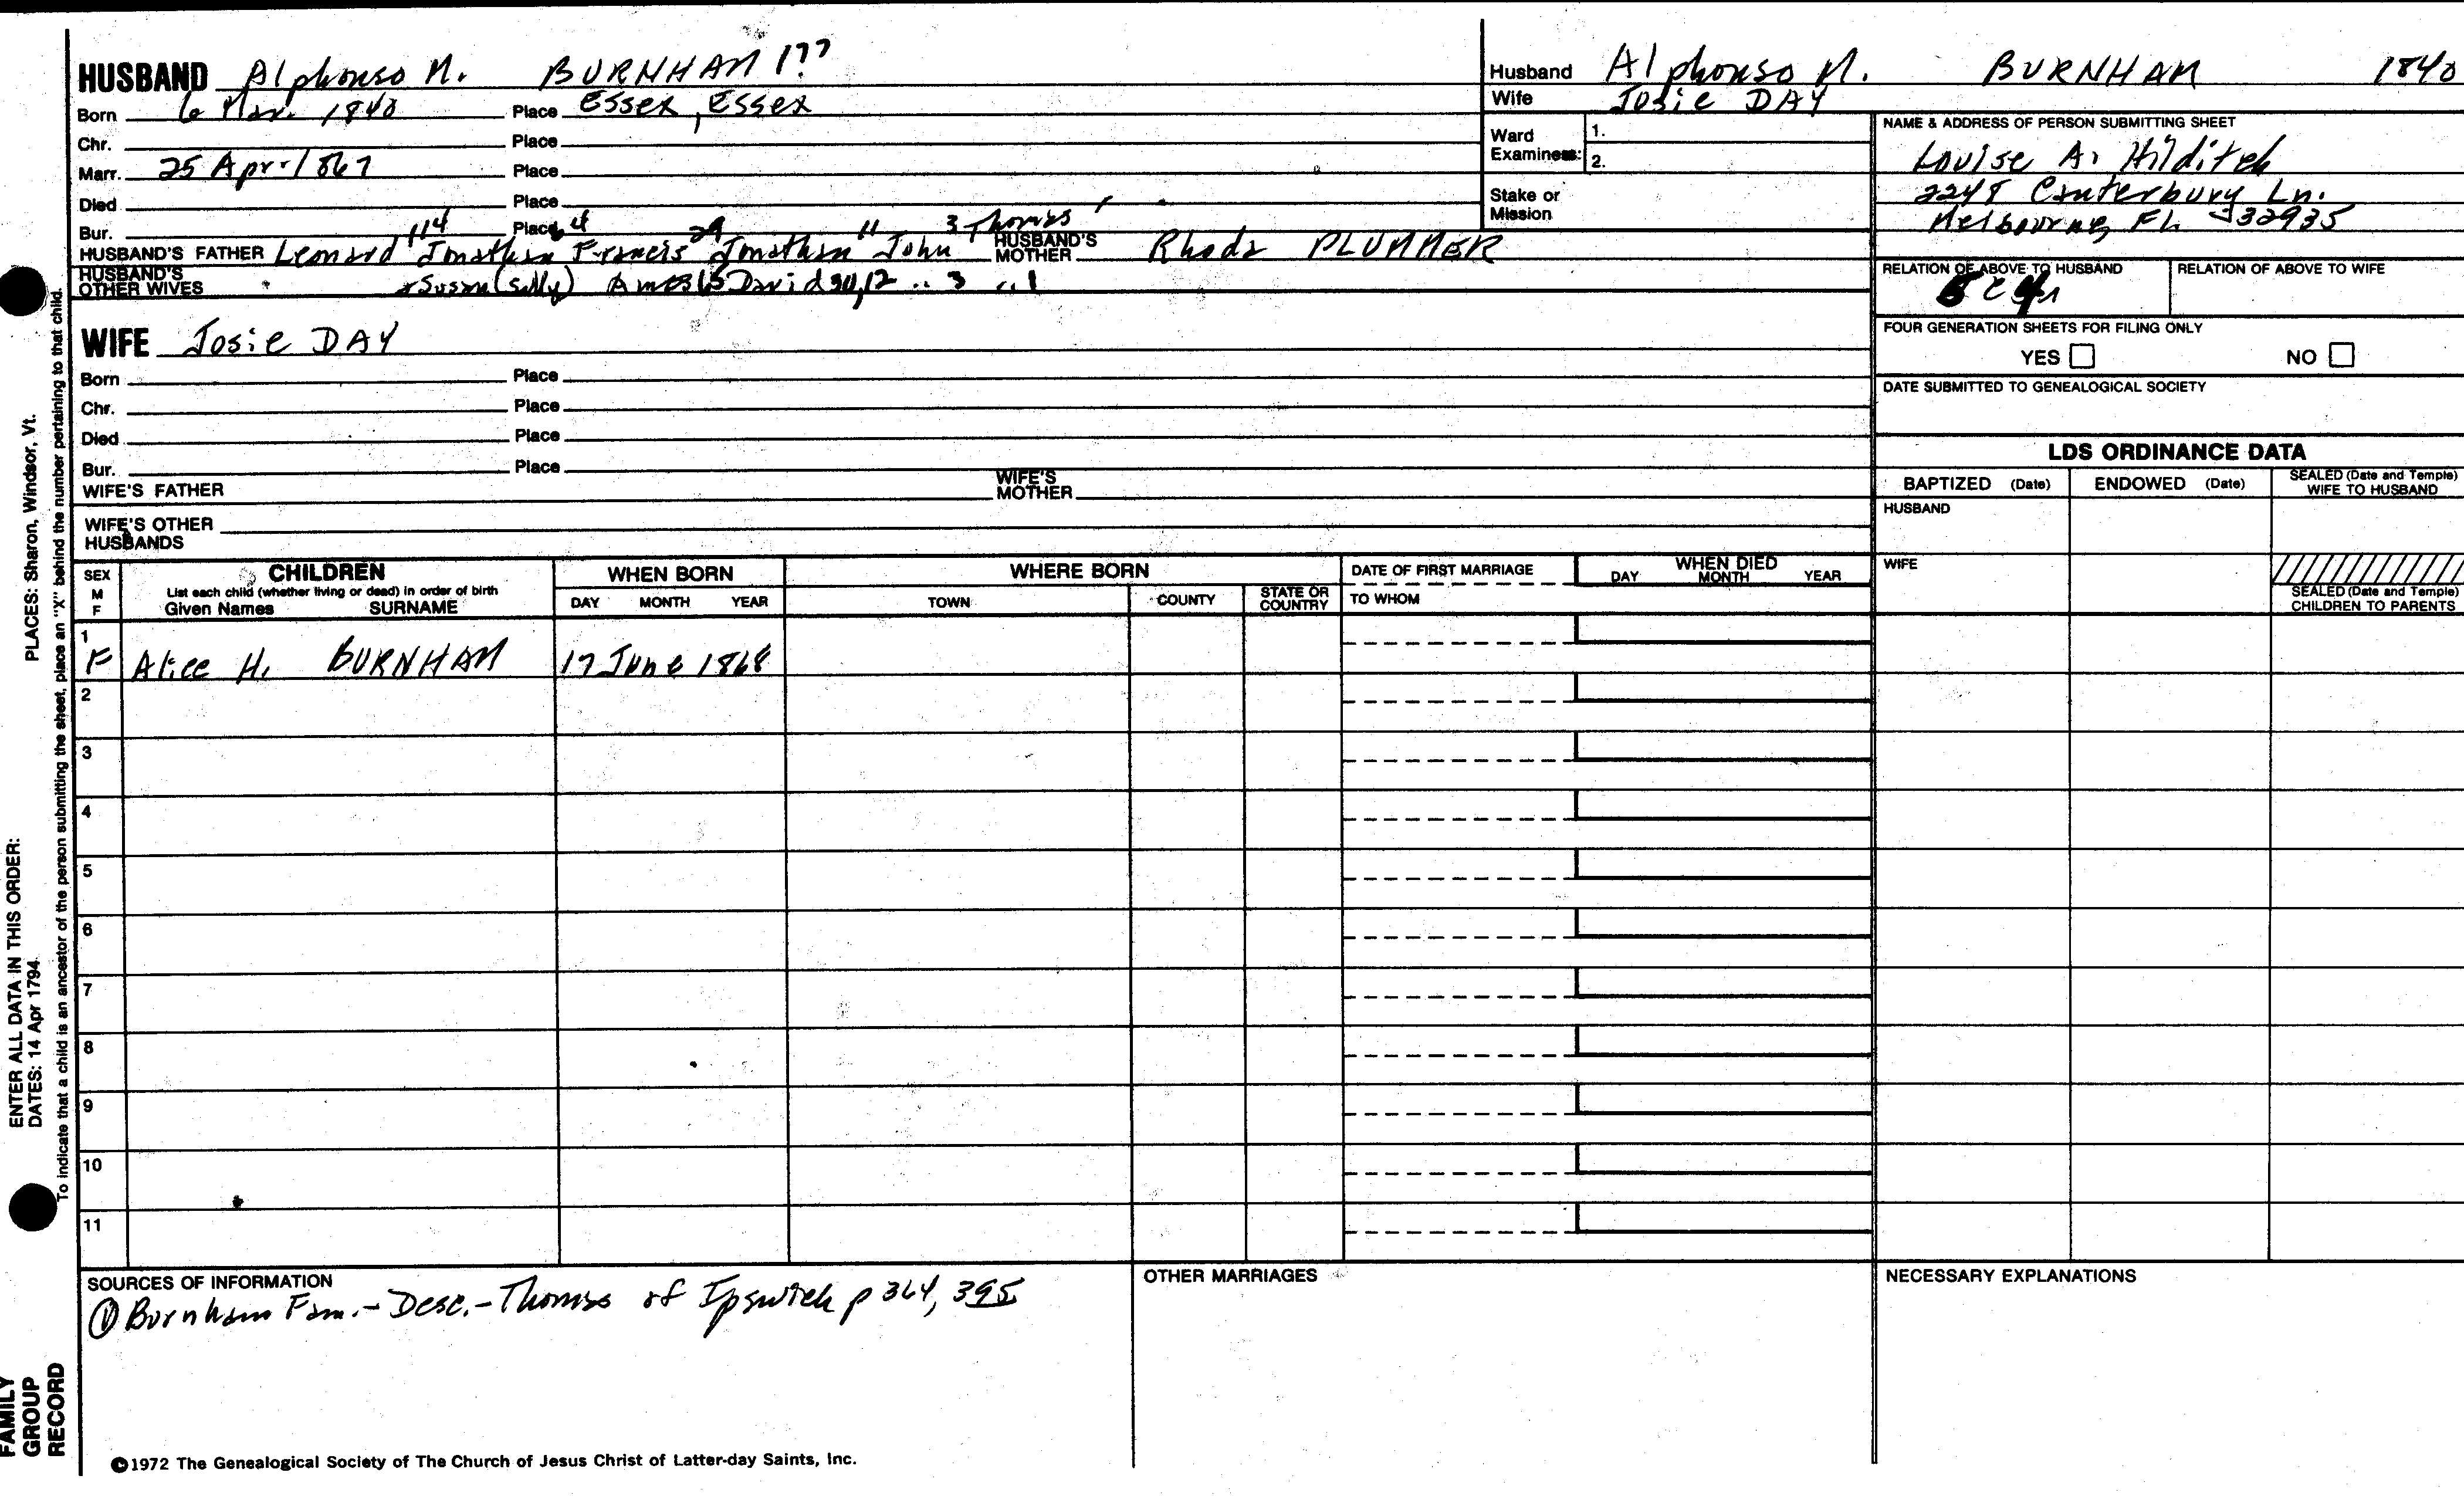 HUSBAND Alphonso M. BURNHAM 1??
Born 6 Mar. 1840 Place Essex, Essex
Chr. Place
Marr. 25 Apr 1867 Place
Died Place
Bur. Place
114 64 29 11 3 Thomas
HUSBAND'S FATHER Leonard Jonathan Francis Jonathan John HUSBAND'S MOTHER Rhoda PLUMMER
HUSBAND'S OTHER WIVES + Susan (Sally) Ames 65 David 30, 12 .. 3 .. 1
WIFE Josie DAY
Born Place
Chr. Place
Died Place
Bur. Place
WIFE'S FATHER WIFE'S MOTHER
WIFE'S OTHER HUSBANDS
Husband Alphonso M. BURNHAM 1840
Wife Josie DAY
Ward Examiners: 1.
2.
Stake or Mission
NAME & ADDRESS OF PERSON SUBMITTING SHEET
Louise A. Hilditch
2248 Canterbury Ln.
Melbourne, FL 32935
RELATION OF ABOVE TO HUSBAND RELATION OF ABOVE TO WIFE
FOUR GENERATION SHEETS FOR FILING ONLY
YES NO
DATE SUBMITTED TO GENEALOGICAL SOCIETY
LDS ORDINANCE DATA
BAPTIZED (Date) ENDOWED (Date) SEALED (Date and Temple) WIFE TO HUSBAND
HUSBAND
WIFE
SEALED (Date and Temple) CHILDREN TO PARENTS
SEX M F CHILDREN WHEN BORN WHERE BORN DATE OF FIRST MARRIAGE WHEN DIED
List each child (whether living or dead) in order of birth
Given Names SURNAME DAY MONTH YEAR TOWN COUNTY STATE OR COUNTRY TO WHOM DAY MONTH YEAR
1
F Alice H. BURNHAM 17 June 1868
2
3
4
5
6
7
8
9
10
11
SOURCES OF INFORMATION
① Burnham Fam. - Desc. - Thomas of Ipswich p 364, 395
OTHER MARRIAGES
NECESSARY EXPLANATIONS
©1972 The Genealogical Society of The Church of Jesus Christ of Latter-day Saints, Inc.
ENTER ALL DATA IN THIS ORDER:
DATES: 14 Apr 1794 PLACES: Sharon, Windsor, Vt.
To indicate that a child is an ancestor of the person submitting the sheet, place an "X" behind the number pertaining to that child.
FAMILY
GROUP
RECORD